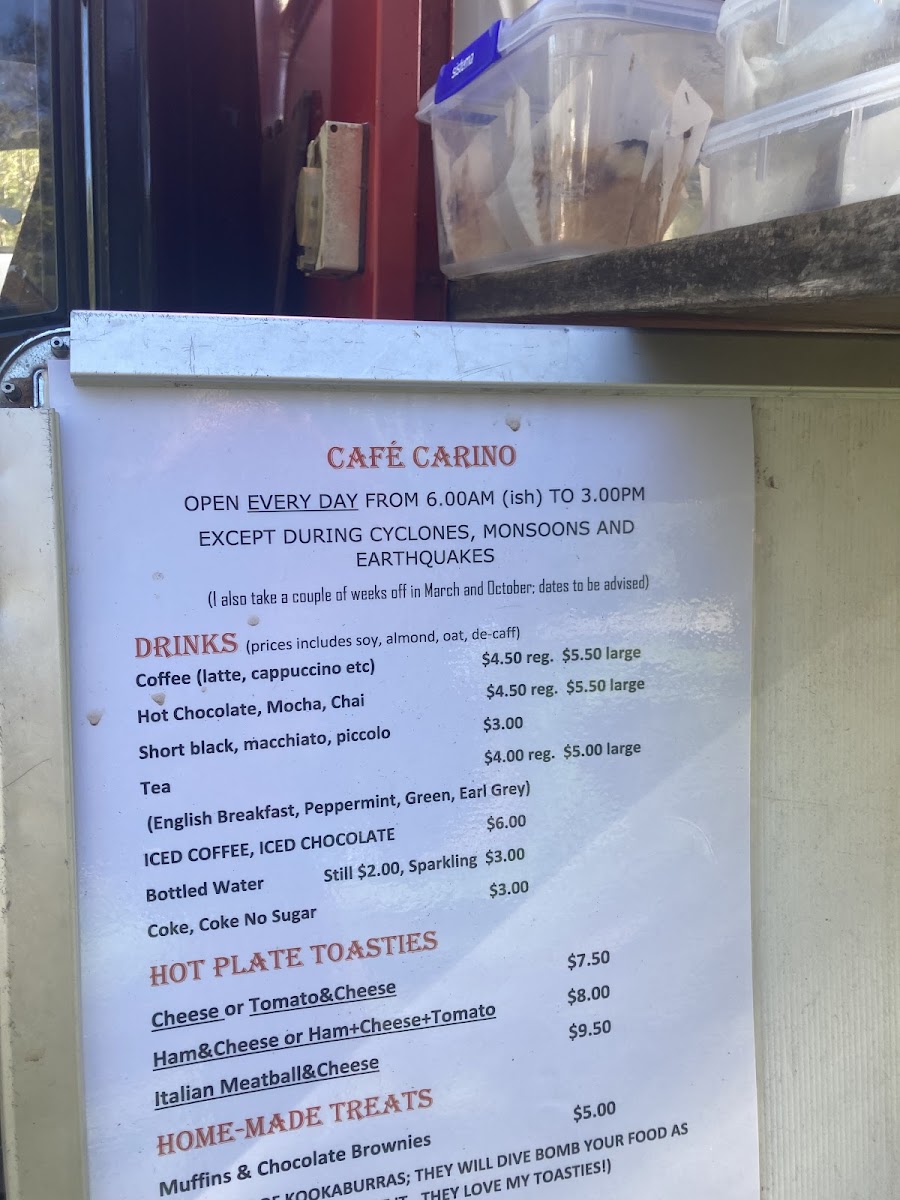 sistema
CAFÉ CARINO
OPEN EVERY DAY FROM 6.00AM (ish) TO 3.00PM
EXCEPT DURING CYCLONES, MONSOONS AND
EARTHQUAKES
(I also take a couple of weeks off in March and October: dates to be advised)
DRINKS (prices includes soy, almond, oat, de-caff)
Coffee (latte, cappuccino etc) $4.50 reg. $5.50 large
Hot Chocolate, Mocha, Chai $4.50 reg. $5.50 large
Short black, macchiato, piccolo $3.00
Tea $4.00 reg. $5.00 large
(English Breakfast, Peppermint, Green, Earl Grey)
ICED COFFEE, ICED CHOCOLATE $6.00
Bottled Water Still $2.00, Sparkling $3.00
Coke, Coke No Sugar $3.00
HOT PLATE TOASTIES
Cheese or Tomato&Cheese $7.50
Ham&Cheese or Ham+Cheese+Tomato $8.00
Italian Meatball&Cheese $9.50
HOME-MADE TREATS
Muffins & Chocolate Brownies $5.00
KOOKABURRAS; THEY WILL DIVE BOMB YOUR FOOD AS
THEY LOVE MY TOASTIES!)